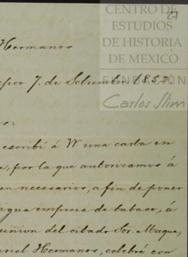 27
CENTRO DE
ESTUDIOS
DE HISTORIA
DE MEXICO
FUNDACIÓN
Carlos Slim
Hermanos
7. de Setiembre 1852.
escribí á V una carta en
por la que autorizamos á
en necesarios, a fin de poner
empresa de tabacos, á
reunion del citado Sor.
Hermanos, celebré con